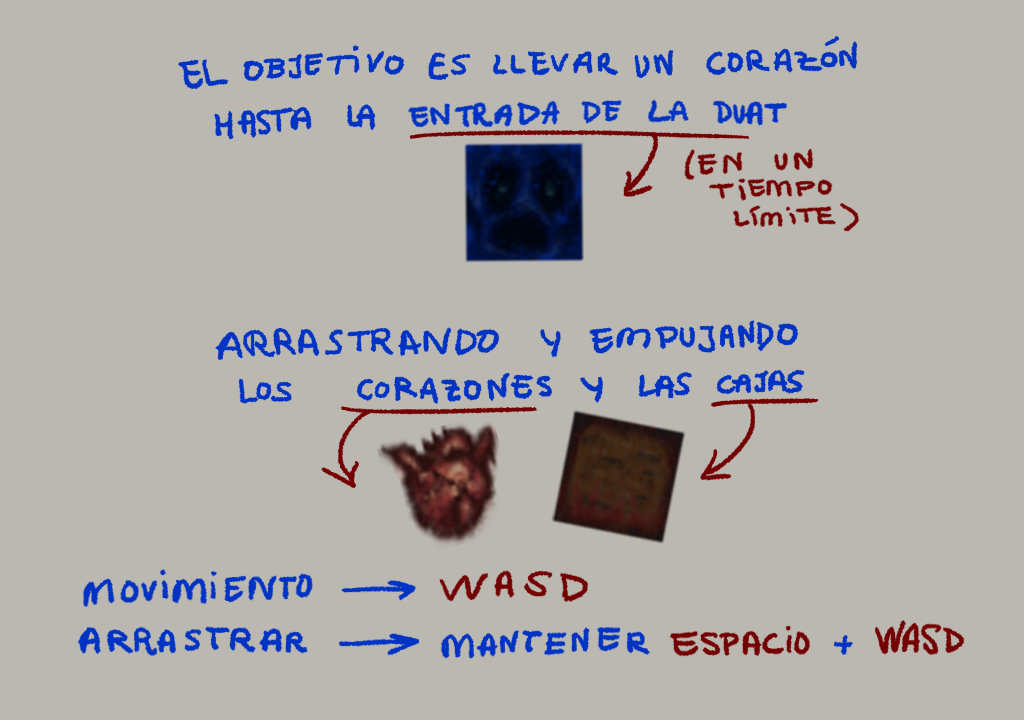 EL OBJETIVO ES LLEVAR UN CORAZÓN
HASTA LA ENTRADA DE LA DUAT
(EN UN
TIEMPO
LÍMITE)
ARRASTRANDO Y EMPUJANDO
LOS CORAZONES Y LAS CAJAS
MOVIMIENTO → WASD
ARRASTRAR → MANTENER ESPACIO + WASD